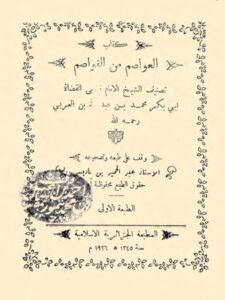 كتاب
العواصم من القواصم
تصنيف الشيخ الامام القضاة
ابي بكر محمد بن العربي
رحمه الله
وقف على طبعه وتصحيحه
الاستاذ عبد الحميد بن باديس
حقوق الطبع محفوظة
الطبعة الاولى
المطبعة الجزائرية الاسلامية
سنة ١٣٤٥ ه ١٩٢٦ م